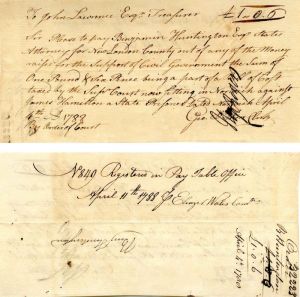 To John Lawrence Esqr. Treasurer £1..0..6
Sir Please to pay Benjamin Huntington Esqr. States
Attorney for New London County out of any of the Money
rais'd for the Support of Civil Government the Sum of
One Pound & Six Pence being a part of a Bill of Cost
taxed by the Supr. Court now sitting in Norwich against
James Hamilton a State Prisoner Dated Norwich April
1788
By Order of Court Geo
No. 849 Registered in Pay Table Office
April 11th 1788 Eleazr Wales
Benj Huntington
B Huntington
1..0..6
April